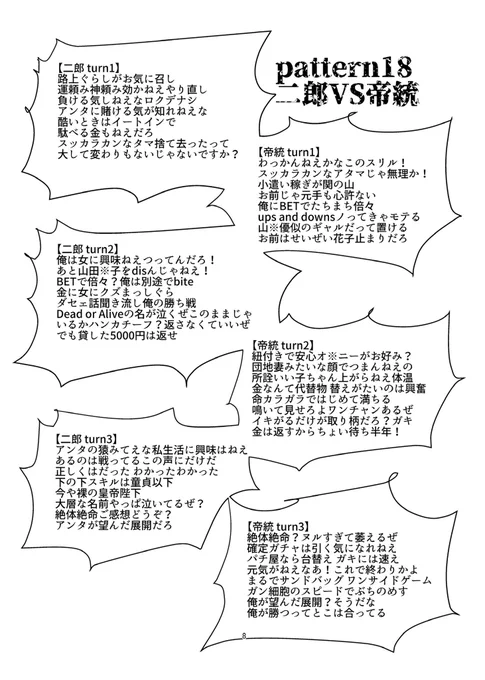 pattern18
二郎VS帝統
【二郎 turn1】
路上ぐらしがお気に召し
運頼み神頼み効かねえやり直し
負ける気しねえなロクデナシ
アンタに賭ける気が知れねえな
酷いときはイートインで
駄べる金もねえだろ
スッカラカンなタマ捨て去ったって
大して変わりもないじゃないですか？
【帝統 turn1】
わっかんねえかなこのスリル！
スッカラカンなアタマじゃ無理か！
小遣い稼ぎが関の山
お前じゃ元手も心許ない
俺にBETでたちまち倍々
ups and downsノってきゃモテる
山※優似のギャルだって置ける
お前はせいぜい花子止まりだろ
【二郎 turn2】
俺は女に興味ねえつってんだろ！
あと山田※子をdisんじゃねえ！
BETで倍々？俺は別途でbite
金に女にクズまっしぐら
ダセェ話聞き流し俺の勝ち戦
Dead or Aliveの名が泣くぜこのままじゃ
いるかハンカチーフ？返さなくていいぜ
でも貸した5000円は返せ
【帝統 turn2】
紐付きで安心オ※ニーがお好み？
団地妻みたいな顔でつまんねえの
所詮いい子ちゃん上がらねえ体温
金なんて代替物 替えがたいのは興奮
命カラガラではじめて満ちる
鳴いて見せろよワンチャンあるぜ
イキがるだけが取り柄だろ？ガキ
金は返すからちょい待ち半年！
【二郎 turn3】
アンタの猿みてえな私生活に興味はねえ
あるのは戦ってるこの声にだけだ
正しくはだった わかったわかった
下の下スキルは童貞以下
今や裸の皇帝陛下
大層な名前やっぱ泣いてるぜ？
絶体絶命ご感想どうぞ？
アンタが望んだ展開だろ
【帝統 turn3】
絶体絶命？ヌルすぎて萎えるぜ
確定ガチャは引く気になれねえ
パチ屋なら台替え ガキには速え
元気がねえなあ！これで終わりかよ
まるでサンドバッグ ワンサイドゲーム
ガン細胞のスピードでぶちのめす
俺が望んだ展開？そうだな
俺が勝つってとこは合ってる
8